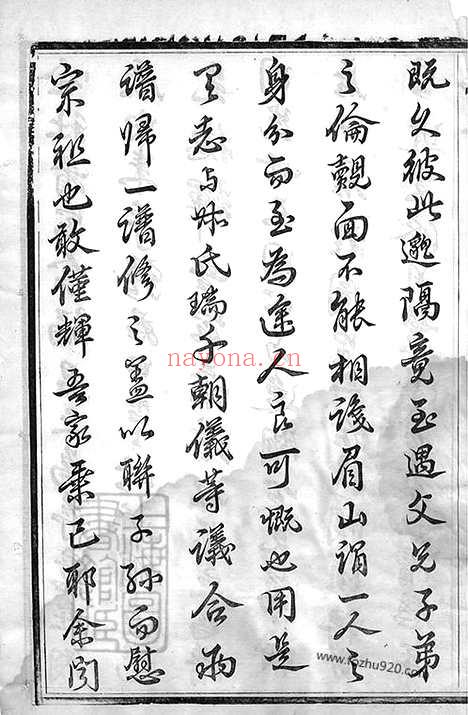 既久彼此邈隔竟至遇父兄子弟
之倫覿面不能相識眉山謂一人之
身分而至為途人良可慨也用是
里志与 氏瑞千朝儀等議合兩
譜歸一譜修之蓋以聯子孫而慰
宗祖也敢僅輝吾家乘已耶余閱
nayona.cn
www.fozhu920.com